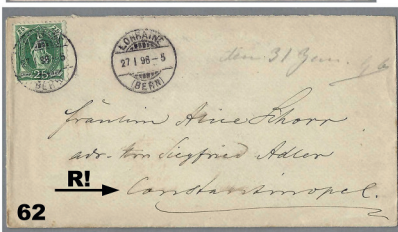 25
LORRAINE
27 I 96-5
(BERN)
den 31 Jan. 96
Fräulein Alice Schorr
adr. Hrn Siegfried Adler
R!
Constantinopel.
62